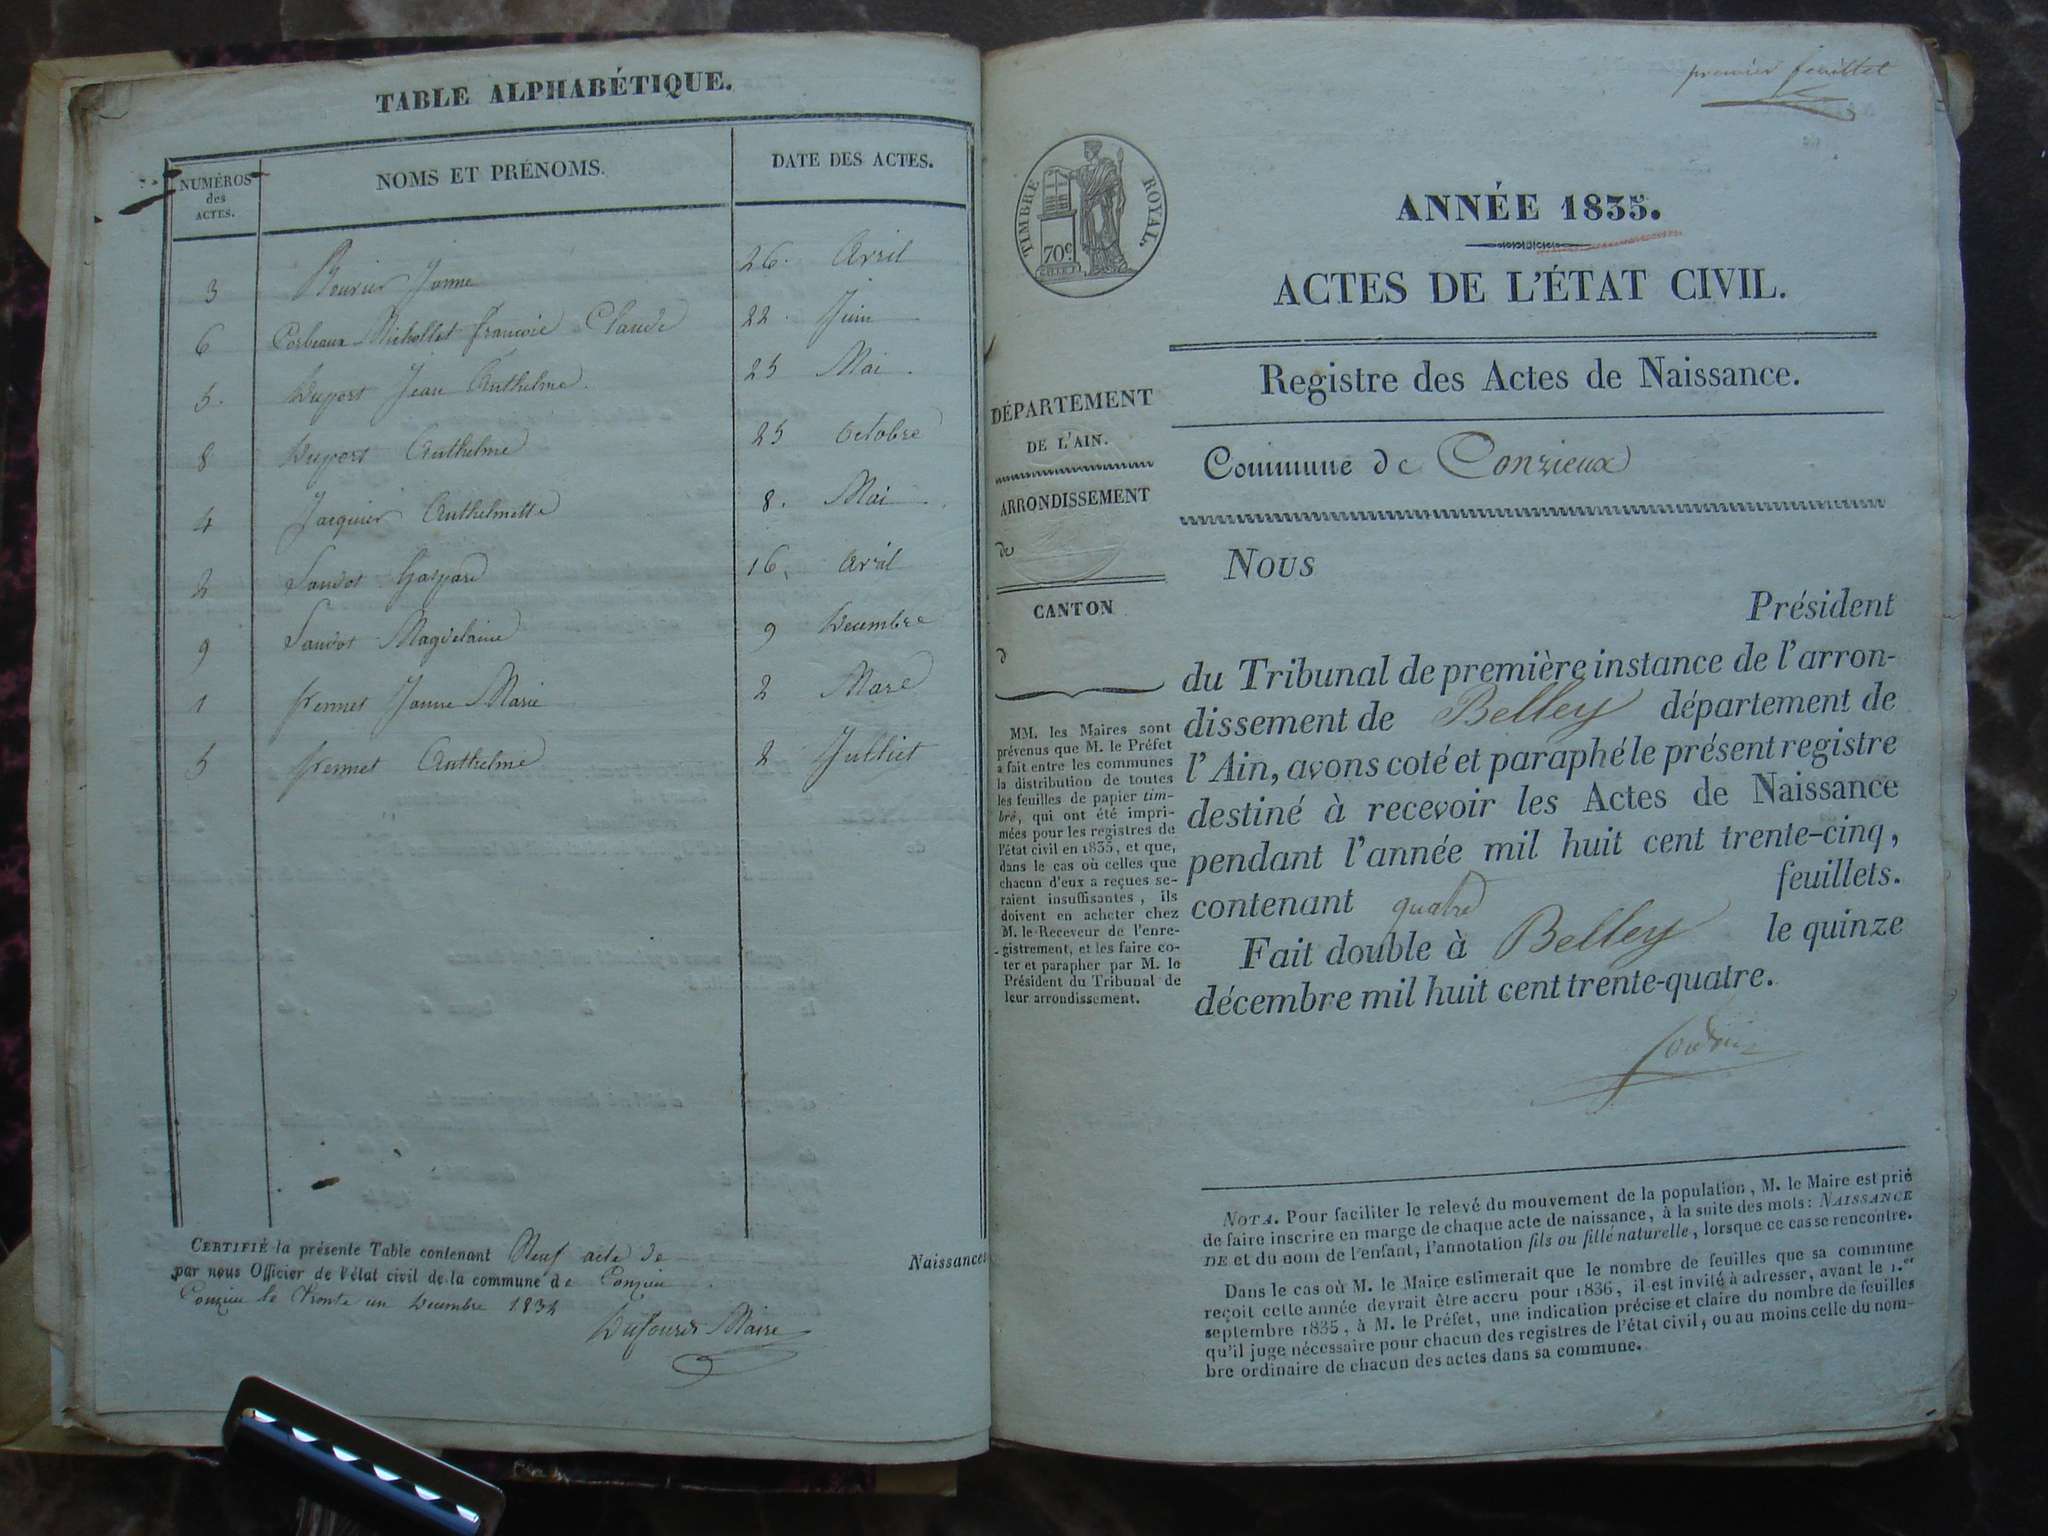 TABLE ALPHABÉTIQUE.
NUMÉROS des ACTES. NOMS ET PRÉNOMS. DATE DES ACTES.
3 Janne 26. Avril
6 Corbeaux François Claude 22. Juin
5. Duport Jean Anthelme. 25 Mai.
8 Duport Anthelme 25 Octobre
4 Jacquier Anthelmette 8. Mai
2 Gaspard 16, Avril
9 Magdelaine 9 Decembre
1 Janne Marie 2 Mars
5 Anthelme 2 Julliet
CERTIFIÉ la présente Table contenant Neuf acte de Naissances
par nous Officier de l'état civil de la commune de Conzieu
Conzieu le Trente un Decembre 1834
Maire
premier feuillet
TIMBRE ROYAL.
70c
ANNÉE 1835.
ACTES DE L'ÉTAT CIVIL.
Registre des Actes de Naissance.
DÉPARTEMENT
DE L'AIN.
ARRONDISSEMENT
de
CANTON
d
MM. les Maires sont
prévenus que M. le Préfet
a fait entre les communes
la distribution de toutes
les feuilles de papier tim-
bré, qui ont été impri-
mées pour les registres de
l'état civil en 1835, et que,
dans le cas où celles que
chacun d'eux a reçues se-
raient insuffisantes, ils
doivent en acheter chez
M. le Receveur de l'enre-
gistrement, et les faire co-
ter et parapher par M. le
Président du Tribunal de
leur arrondissement.
Commune de Conzieux
Nous
Président
du Tribunal de première instance de l'arron-
dissement de Belley département de
l'Ain, avons coté et paraphé le présent registre
destiné à recevoir les Actes de Naissance
pendant l'année mil huit cent trente-cinq,
contenant quatre feuillets.
Fait double à Belley le quinze
décembre mil huit cent trente-quatre.
NOTA. Pour faciliter le relevé du mouvement de la population, M. le Maire est prié
de faire inscrire en marge de chaque acte de naissance, à la suite des mots: NAISSANCE
DE et du nom de l'enfant, l'annotation fils ou fille naturelle, lorsque ce cas se rencontre.
Dans le cas où M. le Maire estimerait que le nombre de feuilles que sa commune
reçoit cette année devrait être accru pour 1836, il est invité à adresser, avant le 1.er
septembre 1835, à M. le Préfet, une indication précise et claire du nombre de feuilles
qu'il juge nécessaire pour chacun des registres de l'état civil, ou au moins celle du nom-
bre ordinaire de chacun des actes dans sa commune.